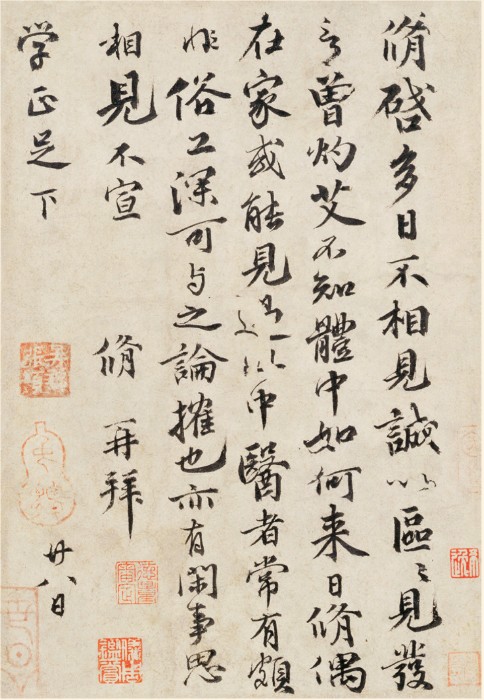 脩啓多日不相見誠以區〻見發
言曾灼艾不知體中如何来日脩偶
在家或能見過此中醫者常有頗
非俗工深可与之論搉也亦有閑事思
相見不宣 脩 再拜
学正足下
廿八日